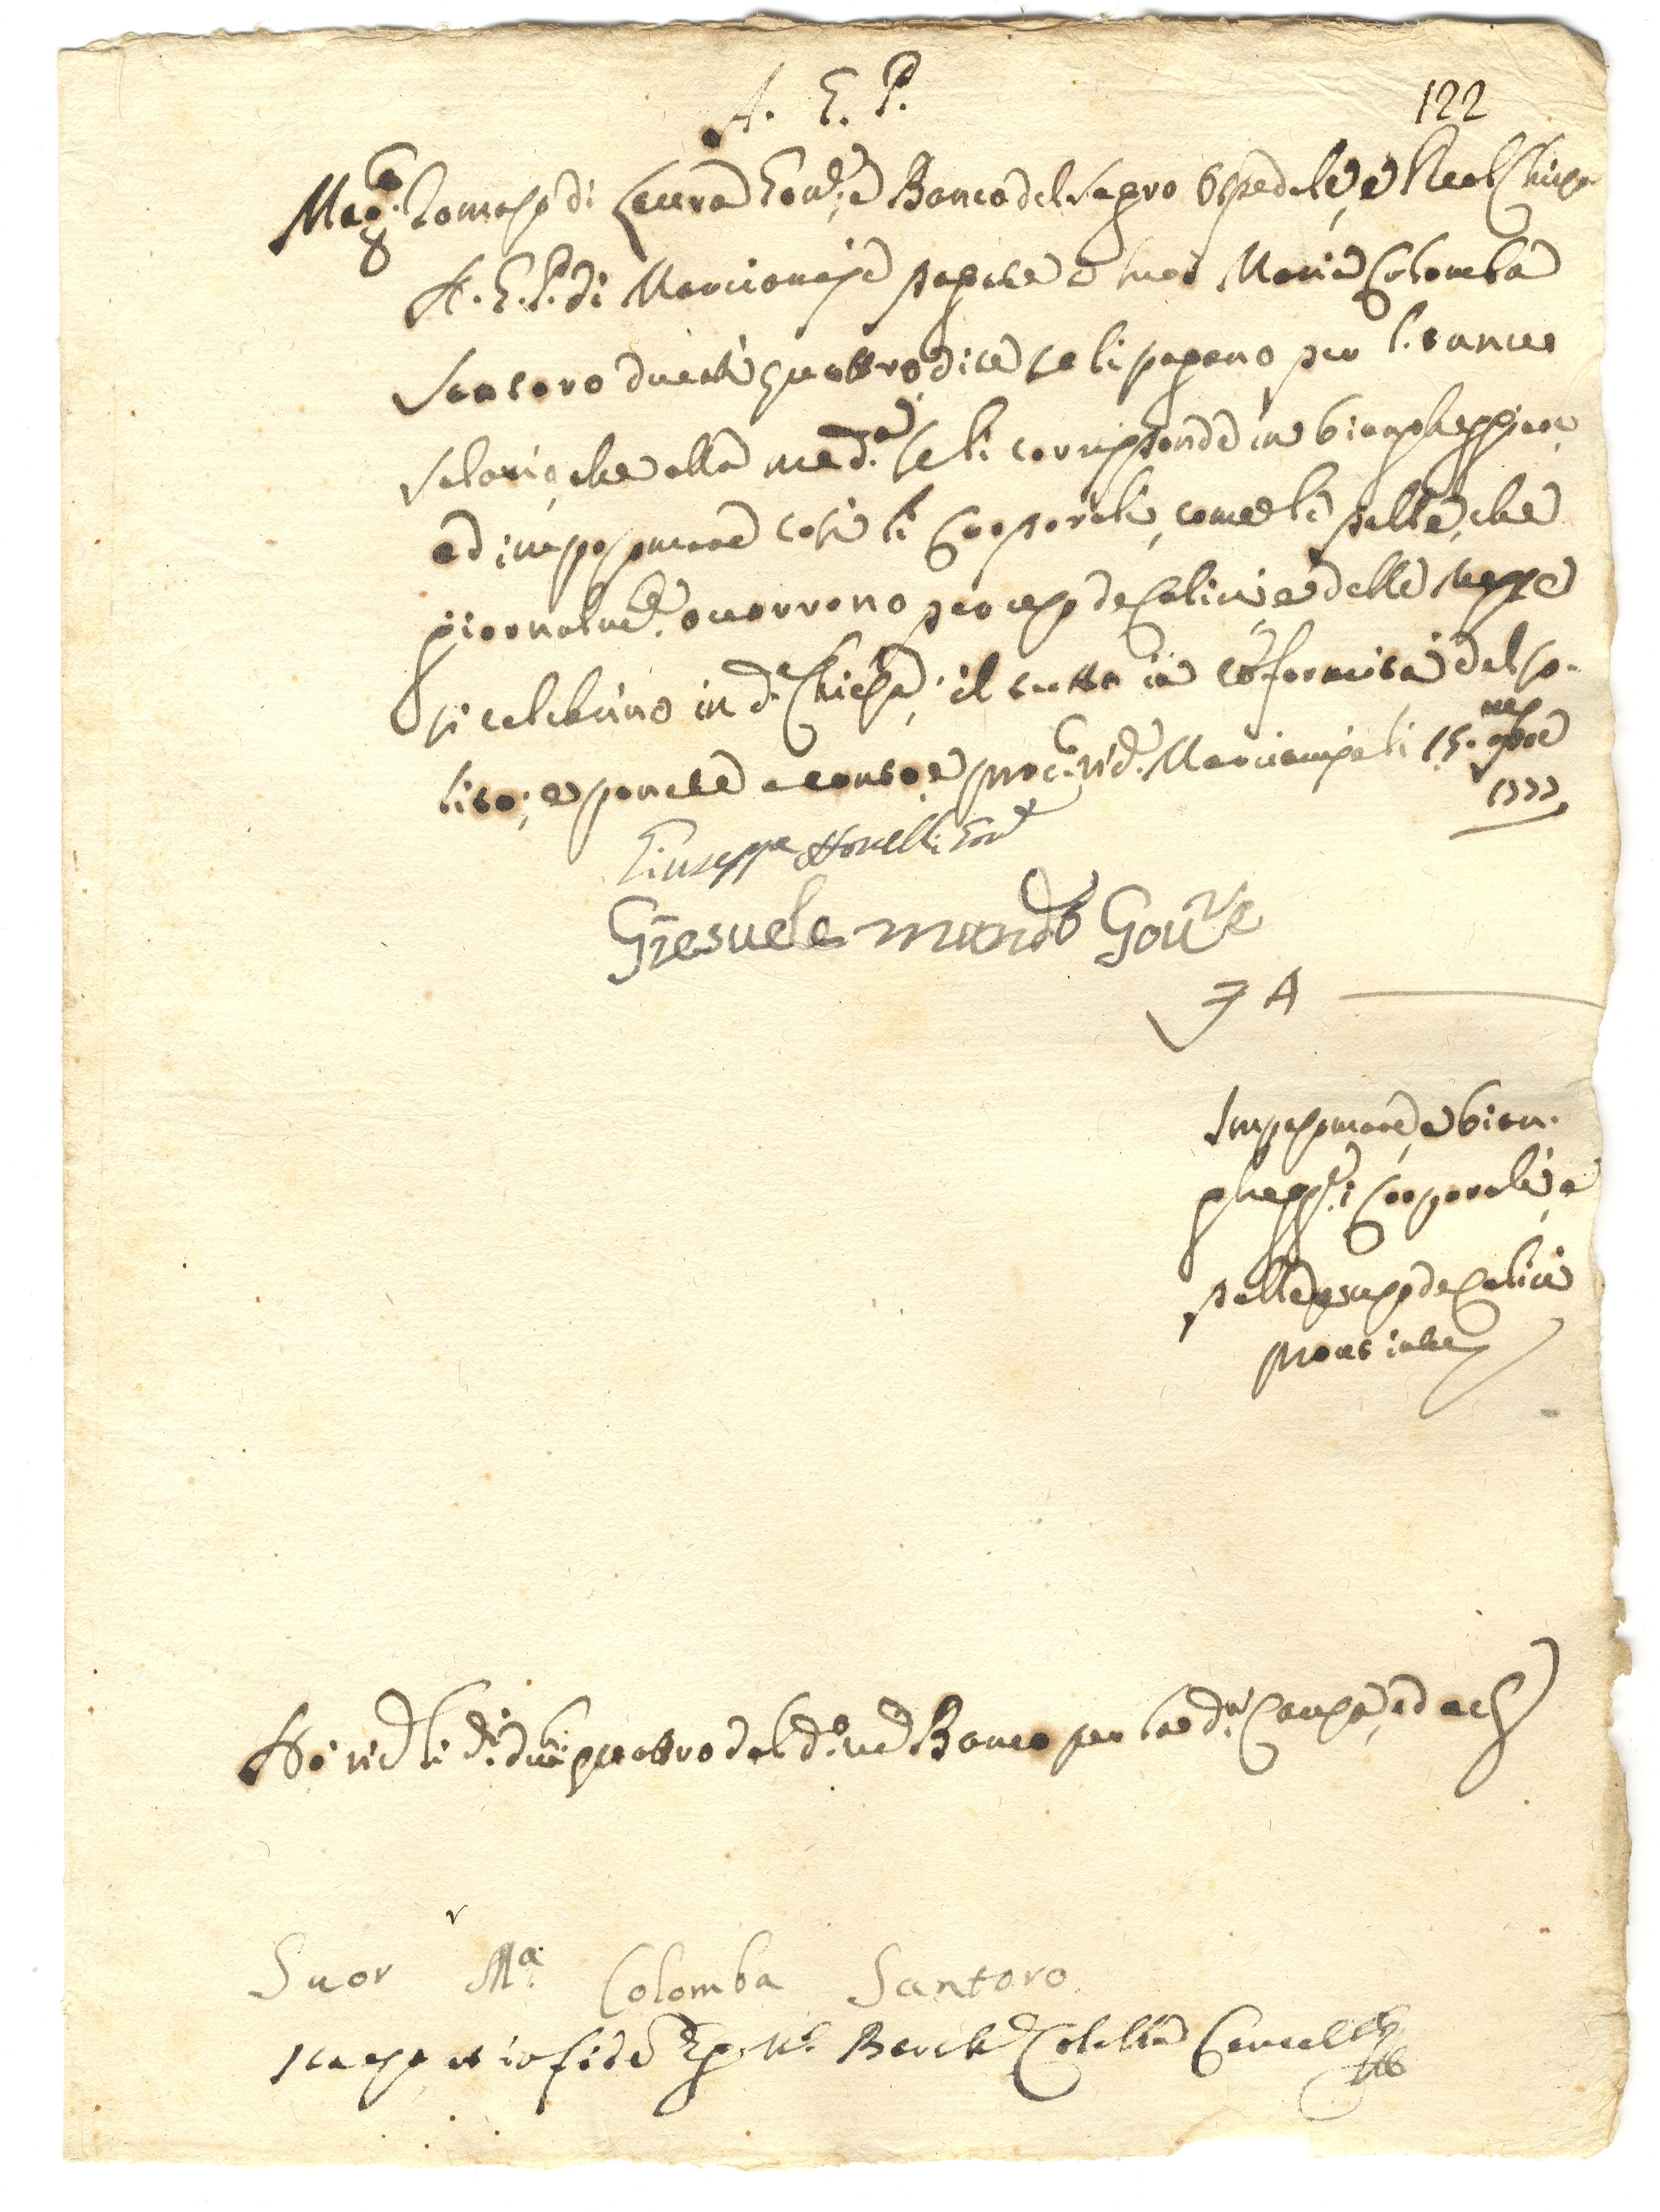 A. G. P.
122
Mag.co Tomaso di Laura Cons.e e Banco del Sagro Ospedale, e Real Chiesa
A. G. P. di Marcianise pagate a suor Maria Colomba
Santoro ducati quattro, dite se li pagano per l'annuo
salario, che alla med.a se li corrisponde in biangheggiare,
ed inapposimare così li Corporali, come le palle, che
giornalm.e occorrono per uso de Calici, e delle messe
si celebrino in d.a Chiesa, il tutto in cōformità del so-
lito; e ponete a conto e proc.e ric.ta Marcianisi li 15. 9bre
1777
Giuseppe Novelli Gov.re
Giesuele mondo Gov.re
7 A
Inposimare, e bian-
ghegg.e i Corporali, e
palle p uso de Calici
prout intus
Ho ric.to li d.i d.ti quattro dal d.o m.o Banco per la d.a Causa, ed a c.
Suor M.a Colomba Santoro
in fide Ego N.r Colella Cancell.e